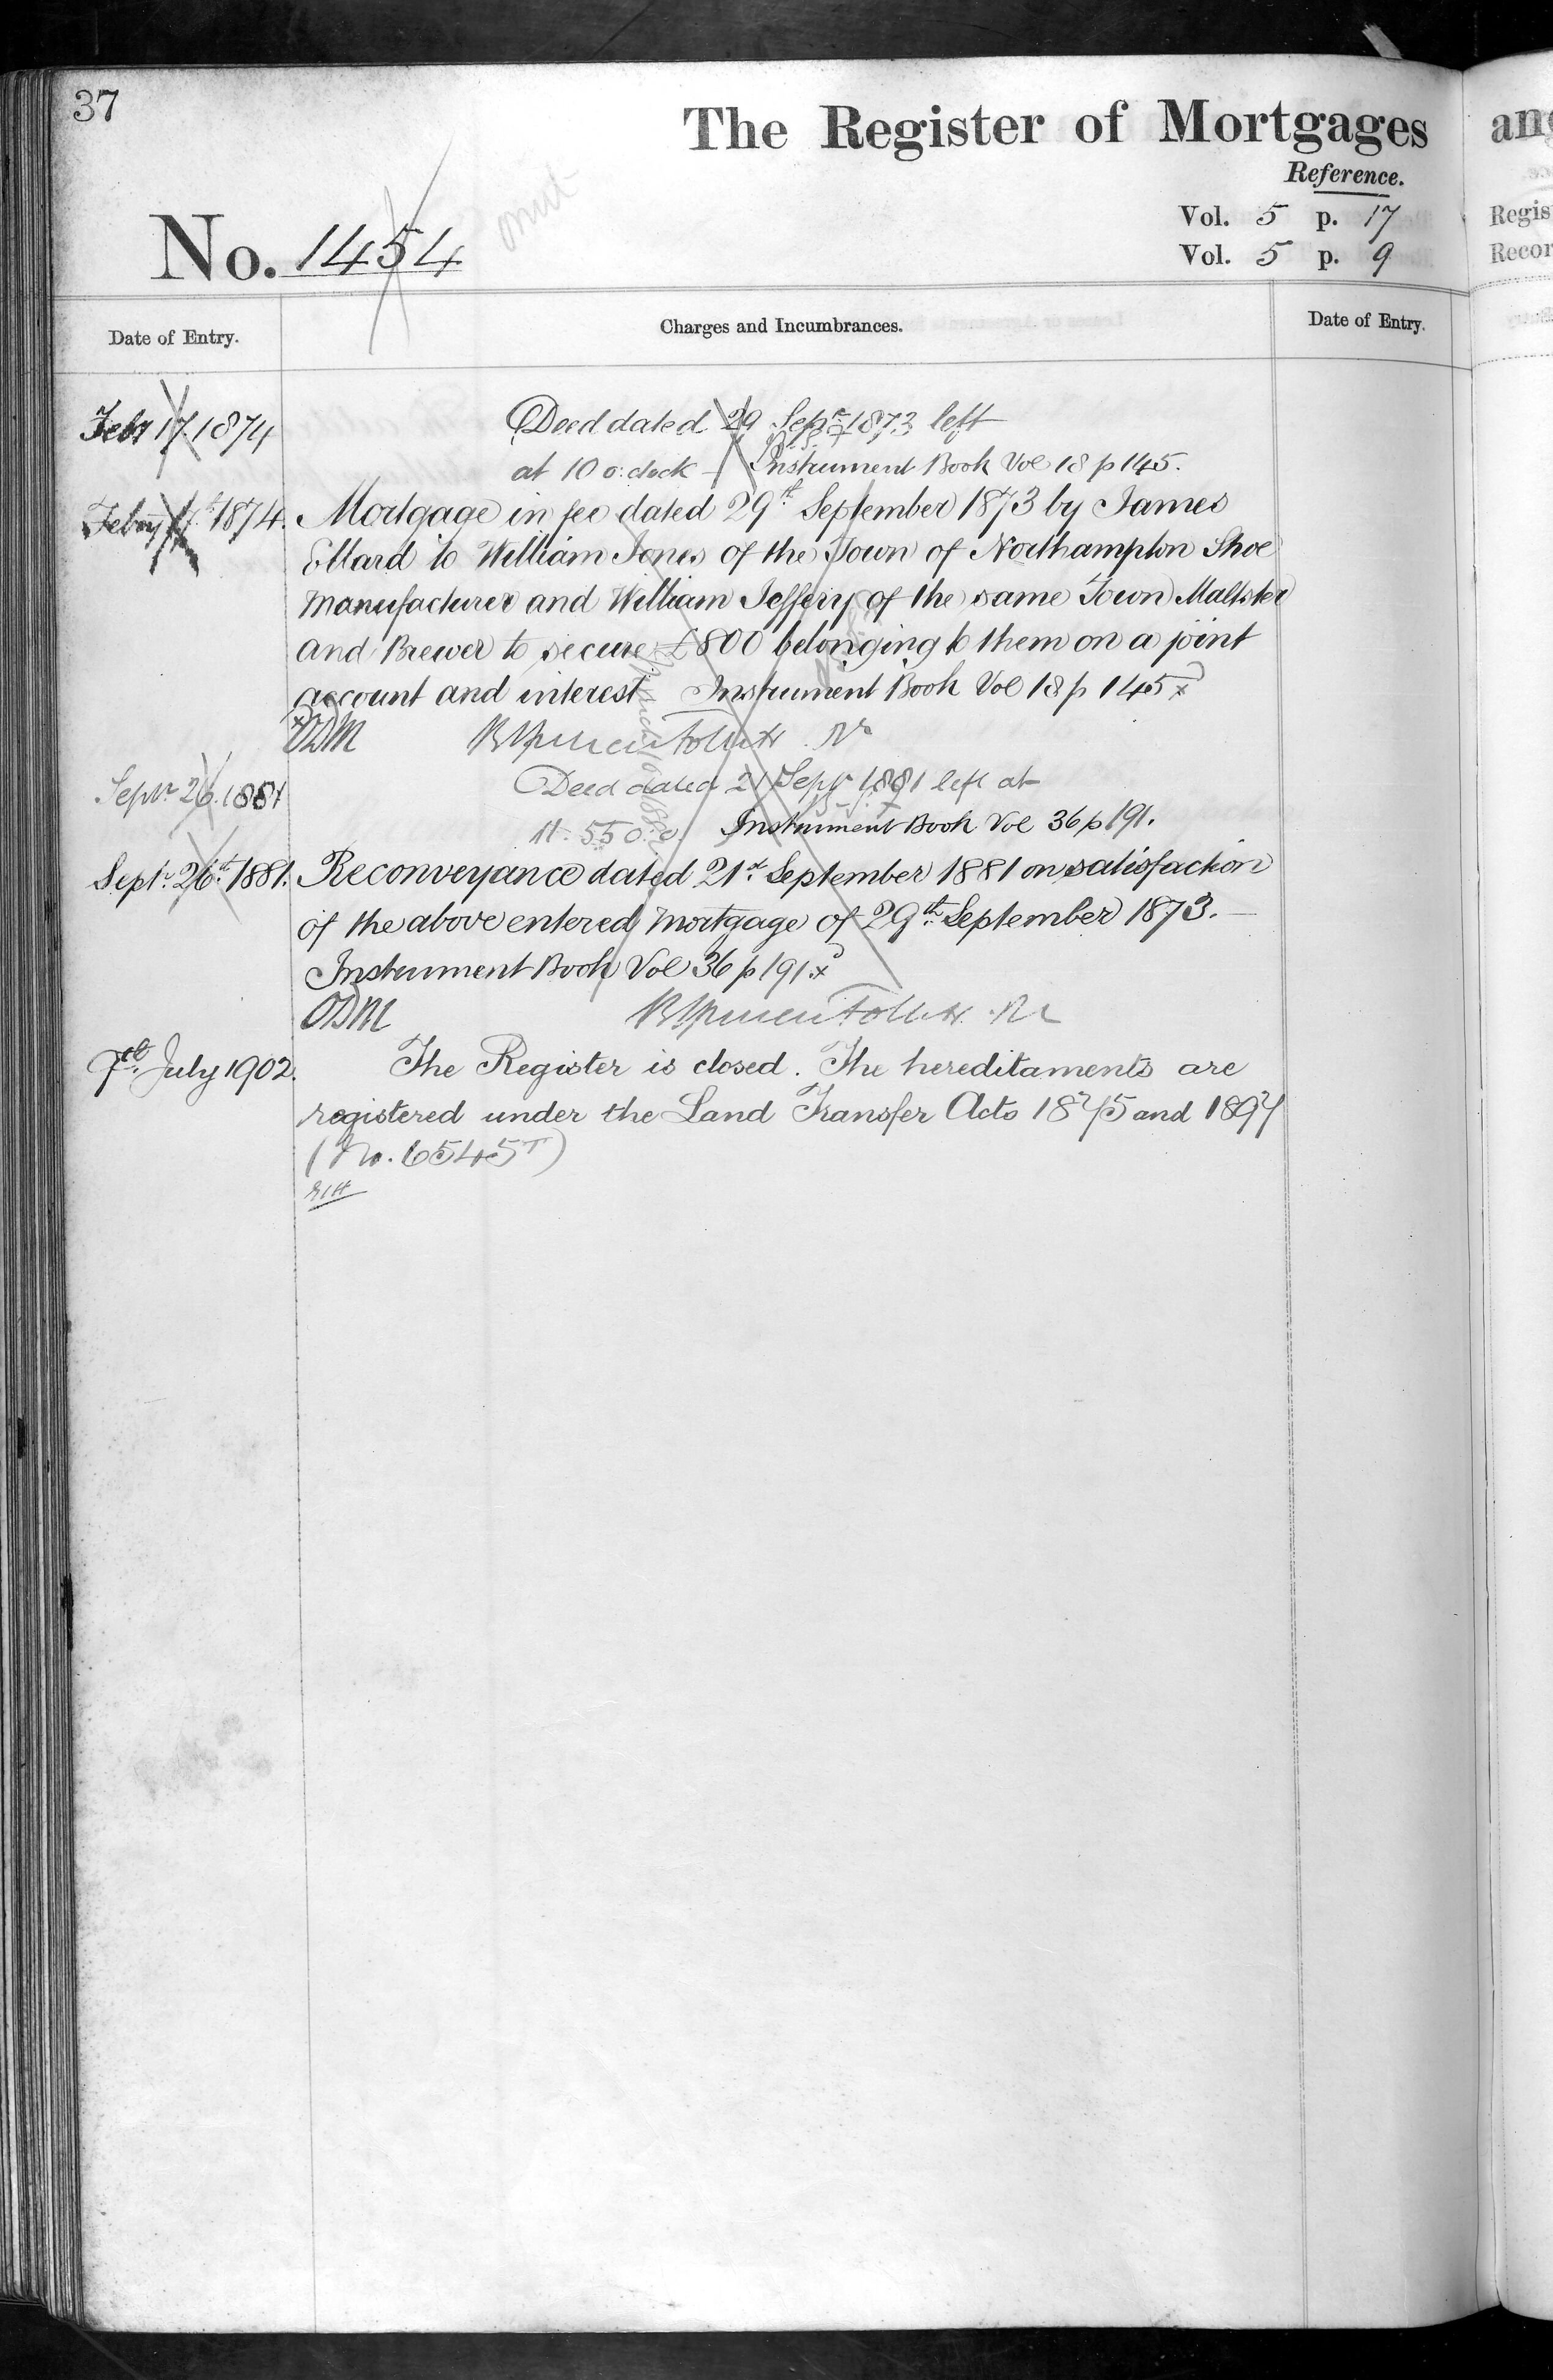 37
The Register of Mortgages
Reference.
Vol. 5 p. 17
Vol. 5 p. 9
No. 1454
omit
Date of Entry.
Charges and Incumbrances.
Date of Entry.
Feby 17. 1874
Deed dated 29 Sepr 1873 left
at 10 o'clock - Instrument Book Vol 18 p 145.
Feby 17th 1874. Mortgage in fee dated 29th September 1873 by James
Ellard to William Jones of the Town of Northampton Shoe
Manufacturer and William Jeffery of the same Town Maltster
and Brewer to secure £800 belonging to them on a joint
account and interest Instrument Book Vol 18 p 145 x
ODM
Septr 26. 1881
Deed dated 21 Septr 1881 left at
11. 55 o.c. Instrument Book Vol 36 p 191.
Septr 26th 1881. Reconveyance dated 21st September 1881 on satisfaction
of the above entered mortgage of 29th September 1873.—
Instrument Book Vol 36 p 191 x
ODM
7th July 1902.
The Register is closed. The hereditaments are
registered under the Land Transfer Acts 1875 and 1897
(No. 6545T)
and
Regis
Recor